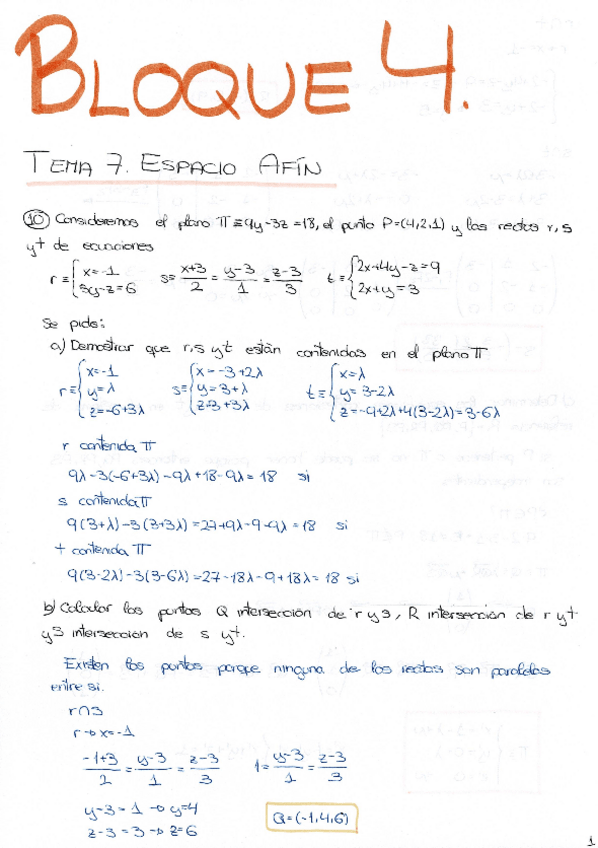 BLOQUE 4.
TEMA 7. ESPACIO AFÍN
⑩ Consideremos el plano π ≡ 9y-3z=18, el punto P=(4,2,1) y las rectas r, s
y t de ecuaciones
r ≡ { x=-1 ; 5y-z=6    s ≡ x+3/2 = y-3/1 = z-3/3    t ≡ { 2x+4y-z=9 ; 2x+y=3
Se pide:
a) Demostrar que r, s y t están contenidas en el plano π
r ≡ { x=-1 ; y=λ ; z=-6+3λ    s ≡ { x=-3+2λ ; y=3+λ ; z=3+3λ    t ≡ { x=λ ; y=3-2λ ; z=-9+2λ+4(3-2λ)=3-6λ
r contenida π
9λ-3(-6+3λ)-9λ+18-9λ=18 si
s contenida π
9(3+λ)-3(3+3λ)=27+9λ-9-9λ=18 si
t contenida π
9(3-2λ)-3(3-6λ)=27-18λ-9+18λ=18 si
b) Calcular los puntos Q intersección de r y s, R intersección de r y t
y S intersección de s y t.
Existen los puntos porque ninguna de las rectas son paralelas
entre si.
r∩s
r→x=-1
-1+3/2 = y-3/1 = z-3/3    1 = y-3/1 = z-3/3
y-3=1 → y=4
z-3=3 → z=6    Q=(-1,4,6)
1